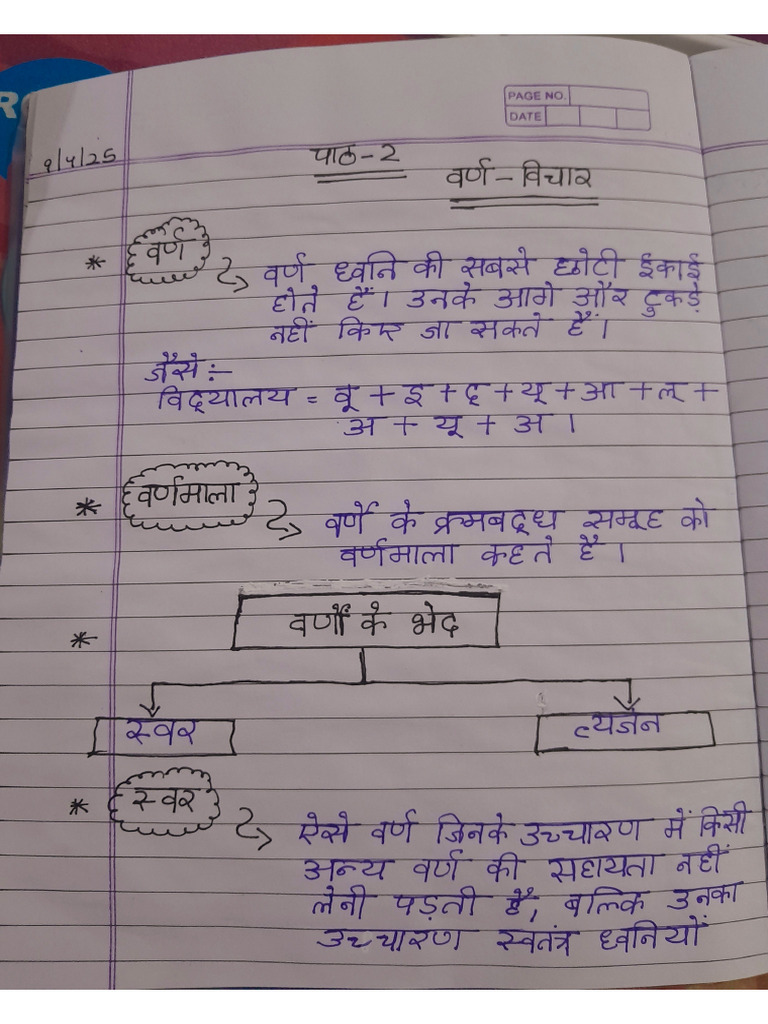 PAGE NO.
DATE
9/4/25
पाठ-2
वर्ण - विचार
* वर्ण
वर्ण ध्वनि की सबसे छोटी ईकाई
होते हैं। उनके आगे और टुकड़े
नहीं किए जा सकते हैं।
जैसे:-
विद्यालय = व् + इ + द् + य् + आ + ल् +
अ + य् + अ ।
* वर्णमाला
वर्णों के क्रमबद्ध समूह को
वर्णमाला कहते हैं ।
* वर्णों के भेद
स्वर
व्यजंन
* स्वर
ऐसे वर्ण जिनके उच्चारण में किसी
अन्य वर्ण की सहायता नहीं
लेनी पड़ती है, बल्कि उनका
उच्चारण स्वतंत्र ध्वनियों